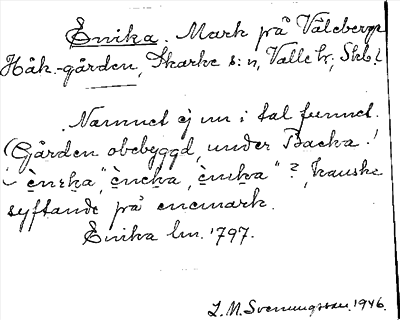 Enika. Mark på Våleberga
Håk.-gården, Skarke s:n, Valle hr; Skbl.
Namnet ej nu i tal funnet.
(Gården obebyggd, under Backa.!
"ènska", èncka, ènika"? kanske
syftande på enemark.
Enika lm. 1797.
L. M. Svenungsson. 1946.